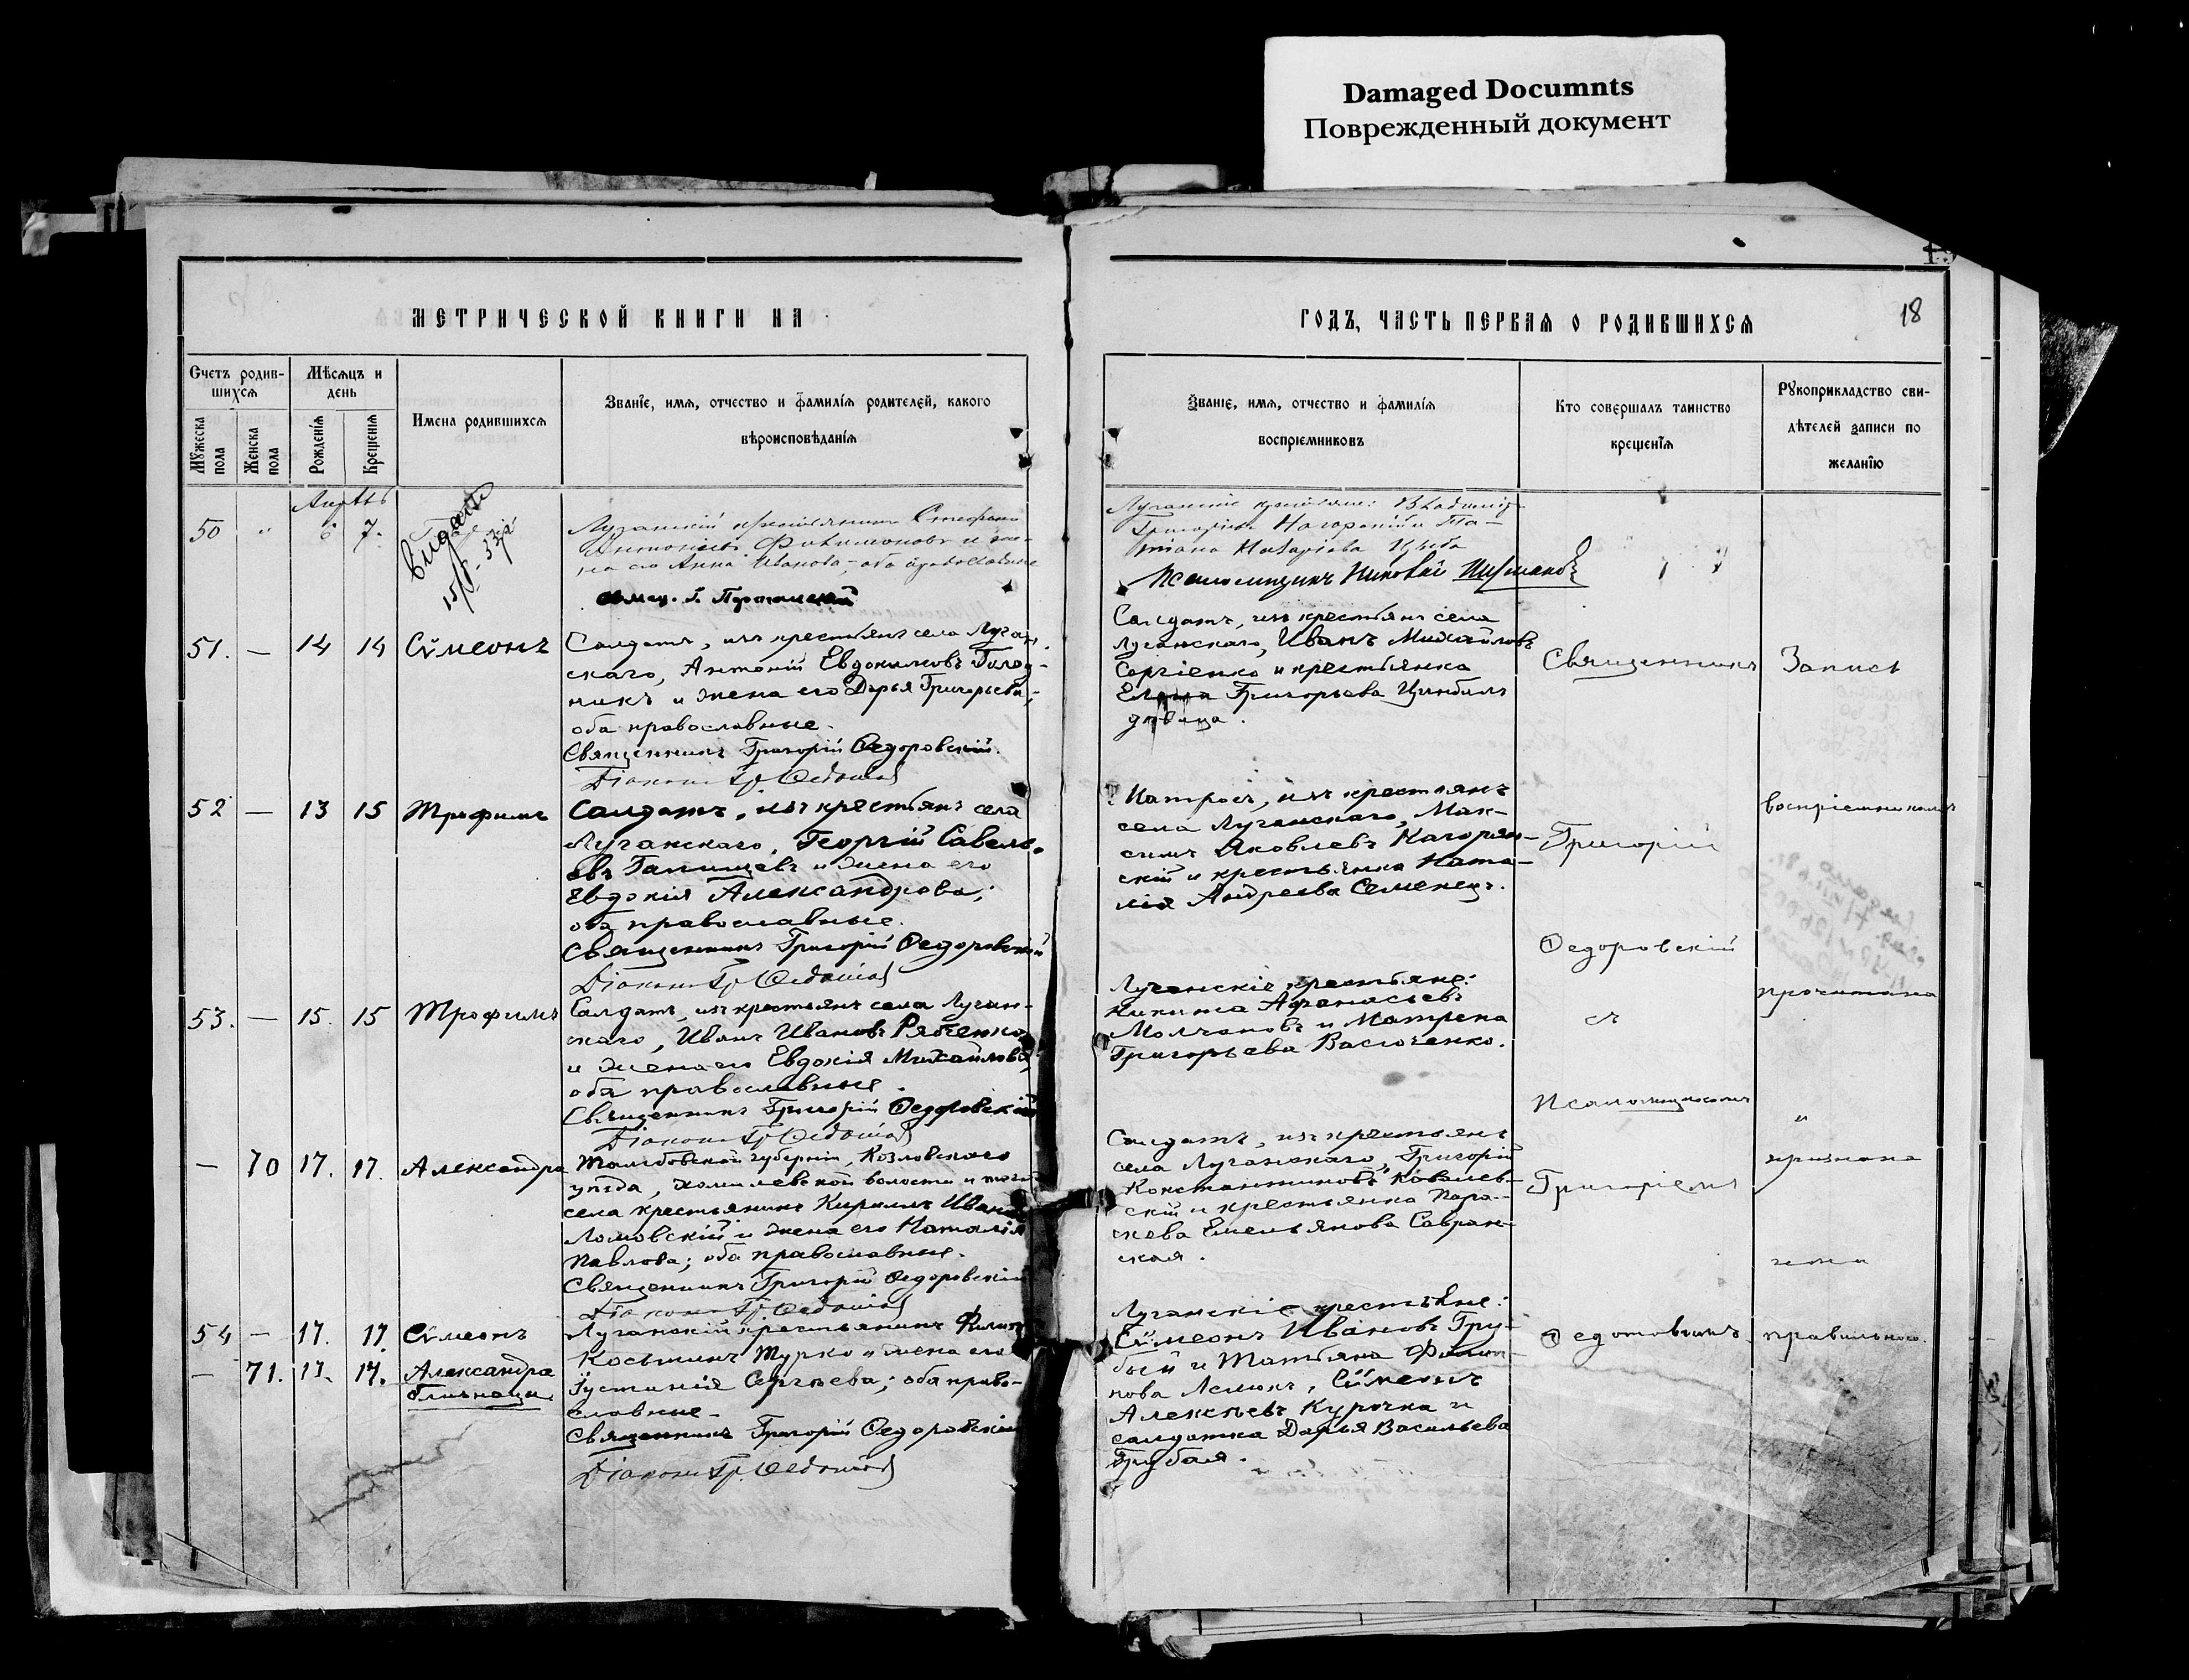 Damaged Documnts
Поврежденный документ
18
МЕТРИЧЕСКОЙ КНИГИ НА
ГОДЪ, ЧАСТЬ ПЕРВАЯ О РОДИВШИХСЯ
Счетъ родив-
шихся
Мужеска пола
Женска пола
Мѣсяцъ и
день
Рожденія
Крещенія
Имена родившихся
Званіе, имя, отчество и фамилія родителей, какого
вѣроисповѣданія
Званіе, имя, отчество и фамилія
воспріемниковъ
Кто совершалъ таинство
крещенія
Рукоприкладство сви-
дѣтелей записи по
желанію
50 " 6 7.
Луганскій крестьянинъ Стефанъ
Филимоновъ и же-
на его Анна Иванова, оба православные
Луганскіе крестьяне: Владиміръ
Григорьевъ Нагорскій и Та-
тіана Назаріева
Псаломщикъ Николай
51. — 14 14 Сѵмеонъ
Солдатъ, изъ крестьянъ села Луган-
скаго, Антоній Евдокимовъ Голод-
никъ и жена его Дарья Григорьева,
оба православные.
Священникъ Григорій Ѳедоровскій.
Діаконъ Гр. Ѳедотовъ
Солдатъ, изъ крестьянъ села
Луганскаго, Иванъ Михайловъ
Сергіенко и крестьянка
Елена Григорьева Цымбалъ
дѣвица.
52 — 13 15 Трофимъ
Солдатъ, изъ крестьянъ села
Луганскаго, Георгій Савель-
евъ Ганищевъ и жена его
Евдокія Александрова;
оба православные.
Священникъ Григорій Ѳедоровскій
Діаконъ Гр. Ѳедотовъ
Матросъ, изъ крестьянъ
села Луганскаго, Мак-
симъ Яковлевъ Нагорян-
скій и крестьянка Ната-
лія Андреева Семенецъ.
53. — 15. 15 Трофимъ
Солдатъ, изъ крестьянъ села Луган-
скаго, Иванъ Ивановъ Рябченко
и жена его Евдокія Михайлова,
оба православные.
Священникъ Григорій Ѳедоровскій
Діаконъ Гр. Ѳедотовъ
Луганскіе крестьяне:
Никита Аѳанасьевъ
Молчановъ и Матрена
Григорьева Васюченко.
— 70 17. 17. Александра
Тамбовской губерніи, Козловскаго
уѣзда, волости и того
села крестьянинъ Кириллъ Ивановъ
Ломовскій и жена его Наталія
Павлова; оба православные.
Священникъ Григорій Ѳедоровскій
Діаконъ Гр. Ѳедотовъ
Солдатъ, изъ крестьянъ
села Луганскаго, Григорій
Константиновъ Ковалев-
скій и крестьянка Пара-
скева Емельянова Савран-
ская.
54 — 17. 17. Сѵмеонъ
— 71. 17. 17. Александра
близнецы
Луганскій крестьянинъ Филиппъ
Косьминъ Турко и жена его
Іустинія Сергѣева; оба право-
славные.
Священникъ Григорій Ѳедоровскій
Діаконъ Гр. Ѳедотовъ
Луганскіе крестьяне:
Сѵмеонъ Ивановъ Гру-
бый и Татьяна Филип-
пова , Сѵмеонъ
Алексѣевъ Курочка и
солдатка Дарья Васильева
Грубая.
Священникъ
Григорій
Ѳедоровскій
съ
Псаломщикомъ
Григоріемъ
Ѳедотовымъ
Запись
воспріемниками
прочитана
и
признана
ими
правильною.